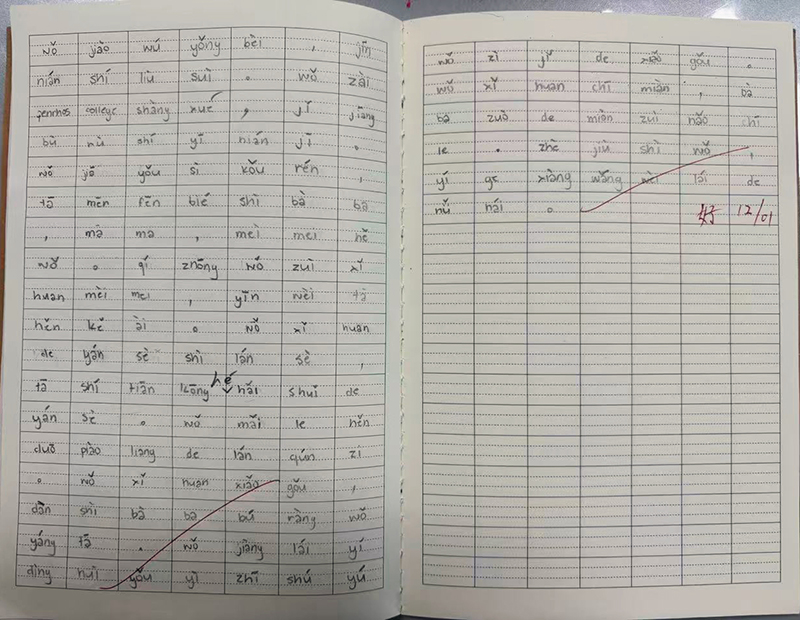 wǒ jiào wú yǒng bèi , jīn
nián shí liù suì 。 wǒ zài
penrhos college shàng xué , jǐ jiāng
bù rù shí yī nián jí 。
wǒ jiā yǒu sì kǒu rén ,
tā mén fēn bié shì bà ba
, mā ma , mèi mei hě
wǒ 。 qí zhōng wǒ zuì xǐ
huan mèi mei , yīn wèi tā
hěn kě ài 。 wǒ xǐ huan
de yán sè shì lán sè ,
tā shí tiān kōng hé hǎi shuǐ de
yán sè 。 wǒ mǎi le hěn
duō piào liang de lán qún zi
。 wǒ xǐ huan xiǎo gǒu ,
dàn shì bà ba bú ràng wǒ
yǎng tā . wǒ jiāng lái yí
dìng huì yǒu yì zhī shú yú
wǒ zì jǐ de xiǎo gǒu 。
wǒ xǐ huan chī miàn , bà
ba zuò de miàn zuì hǎo chī
le . zhè jiù shì wǒ ,
yí ge xiàng wǎng wèi lái de
nǚ hái 。 好 12/01